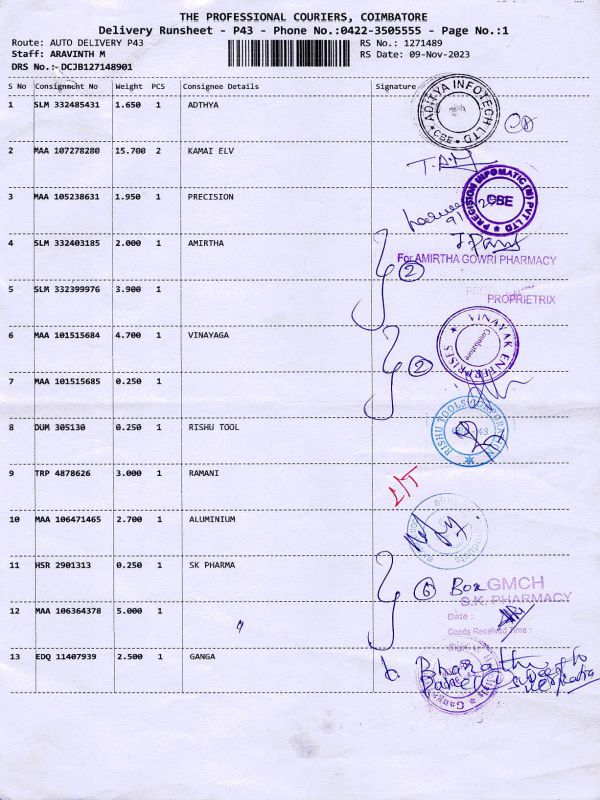 THE PROFESSIONAL COURIERS, COIMBATORE
Delivery Runsheet - P43 - Phone No.:0422-3505555 - Page No.:1
Route: AUTO DELIVERY P43 RS No.: 1271489
Staff: ARAVINTH M RS Date: 09-Nov-2023
DRS No.:- DCJB127148901
S No Consignment No Weight PCS Consignee Details Signature
1 SLM 332485431 1.650 1 ADTHYA
ADITYA INFOTECH LTD
CBE
2 MAA 107278280 15.700 2 KAMAI ELV
3 MAA 105238631 1.950 1 PRECISION
PRECISION INFOMATIC (M) PVT LTD
CBE
4 SLM 332403185 2.000 1 AMIRTHA
2
For AMIRTHA GOWRI PHARMACY
5 SLM 332399976 3.900 1
PROPRIETRIX
6 MAA 101515684 4.700 1 VINAYAGA
VINAYAK ENTERPRISES
Coimbatore
2
7 MAA 101515685 0.250 1
8 DUM 305130 0.250 1 RISHU TOOL
RISHU TOOLS CORPORATION
9 TRP 4878626 3.000 1 RAMANI
10 MAA 106471465 2.700 1 ALUMINIUM
11 HSR 2901313 0.250 1 SK PHARMA
6 Box
GMCH
S.K. PHARMACY
12 MAA 106364378 5.000 1
Date :
Goods Received Time :
13 EDQ 11407939 2.500 1 GANGA